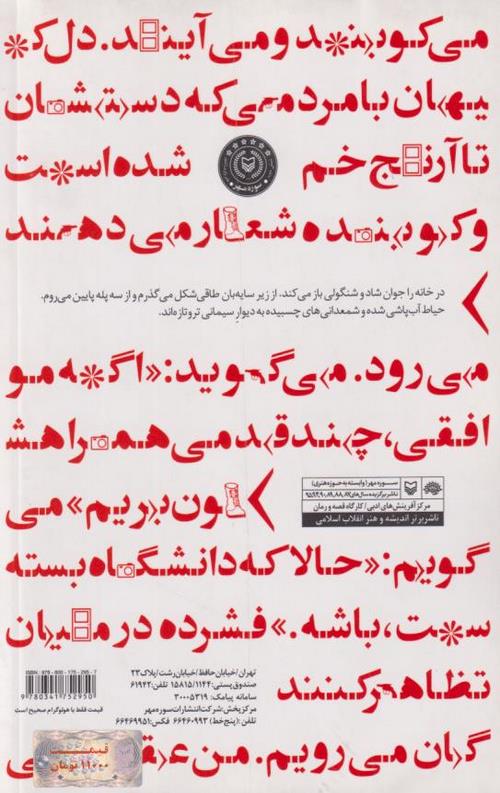 می‌کوبند و می‌آیند. دل کـ
یهان با مردمی که دستشان
تا آرنج خم شده است
سوره مهر
و کوبنده شعار می‌دهند
در خانه را جوان شاد و شنگولی باز می‌کند. از زیر سایه‌بان طاقی‌شکل می‌گذرم و از سه پله پایین می‌روم.
حیاط آب‌پاشی شده و شمعدانی‌های چسبیده به دیوار سیمانی تر و تازه‌اند.
می‌رود. می‌گوید: «اگه مو
افقی، چند قدمی همراهشـ
ـون بریم» می
سوره مهر (وابسته به حوزه هنری)
ناشر برگزیده سال‌های
مرکز آفرینش‌های ادبی / کارگاه قصه و رمان
ناشر برتر اندیشه و هنر انقلاب اسلامی
گویم: «حالا که دانشگاه بسته
ست، باشه.» فشرده در میان
تظاهرکنند
گان می‌رویم. من
ISBN: 978-600-175-295-7
9780341752950
قیمت فقط با هولوگرام صحیح است
تهران / خیابان حافظ / خیابان رشت / پلاک ۲۳
صندوق پستی: ۱۵۸۱۵/۱۱۴۴ تلفن: ۶۱۹۴۲
سامانه پیامک: ۳۰۰۰۵۳۱۹
مرکز پخش: شرکت انتشارات سوره مهر
تلفن: (پنج خط) ۶۶۴۶۰۹۹۳ فکس: ۶۶۴۶۹۹۵۱
قیمت
۱۱۰۰۰ تومان